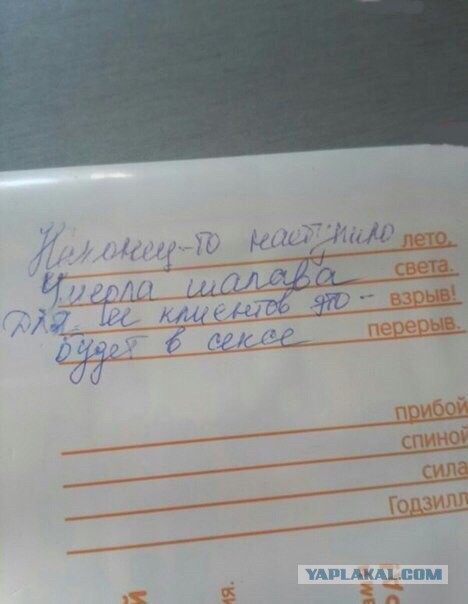 Наконец-то наступило лето,
Умерла шалава света.
Для её клиентов это - взрыв!
Будет в сексе перерыв.
прибой
спиной
сила
Годзилл
ия.
YAPLAKAL.COM